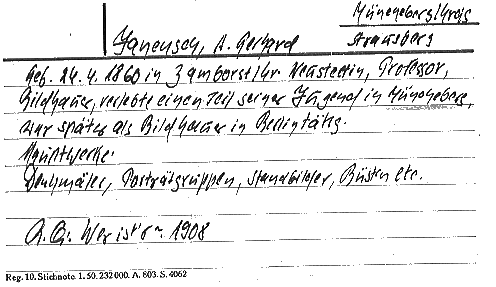 Müncheberg/Kreis
Strausberg
Janensch, A. Gerhard
Geb. 24. 4. 1860 in Zamborst/Kr. Neustettin, Professor,
Bildhauer, verlebte einen Teil seiner Jugend in Müncheberg,
war später als Bildhauer in Berlin tätig.
Kunstwerke:
Denkmäler, Porträtgruppen, Standbilder, Büsten etc.
R. Q.: Wer ist's. 1908
Reg. 10. Stichnote. 1. 50. 232000. A. 803. S. 4062